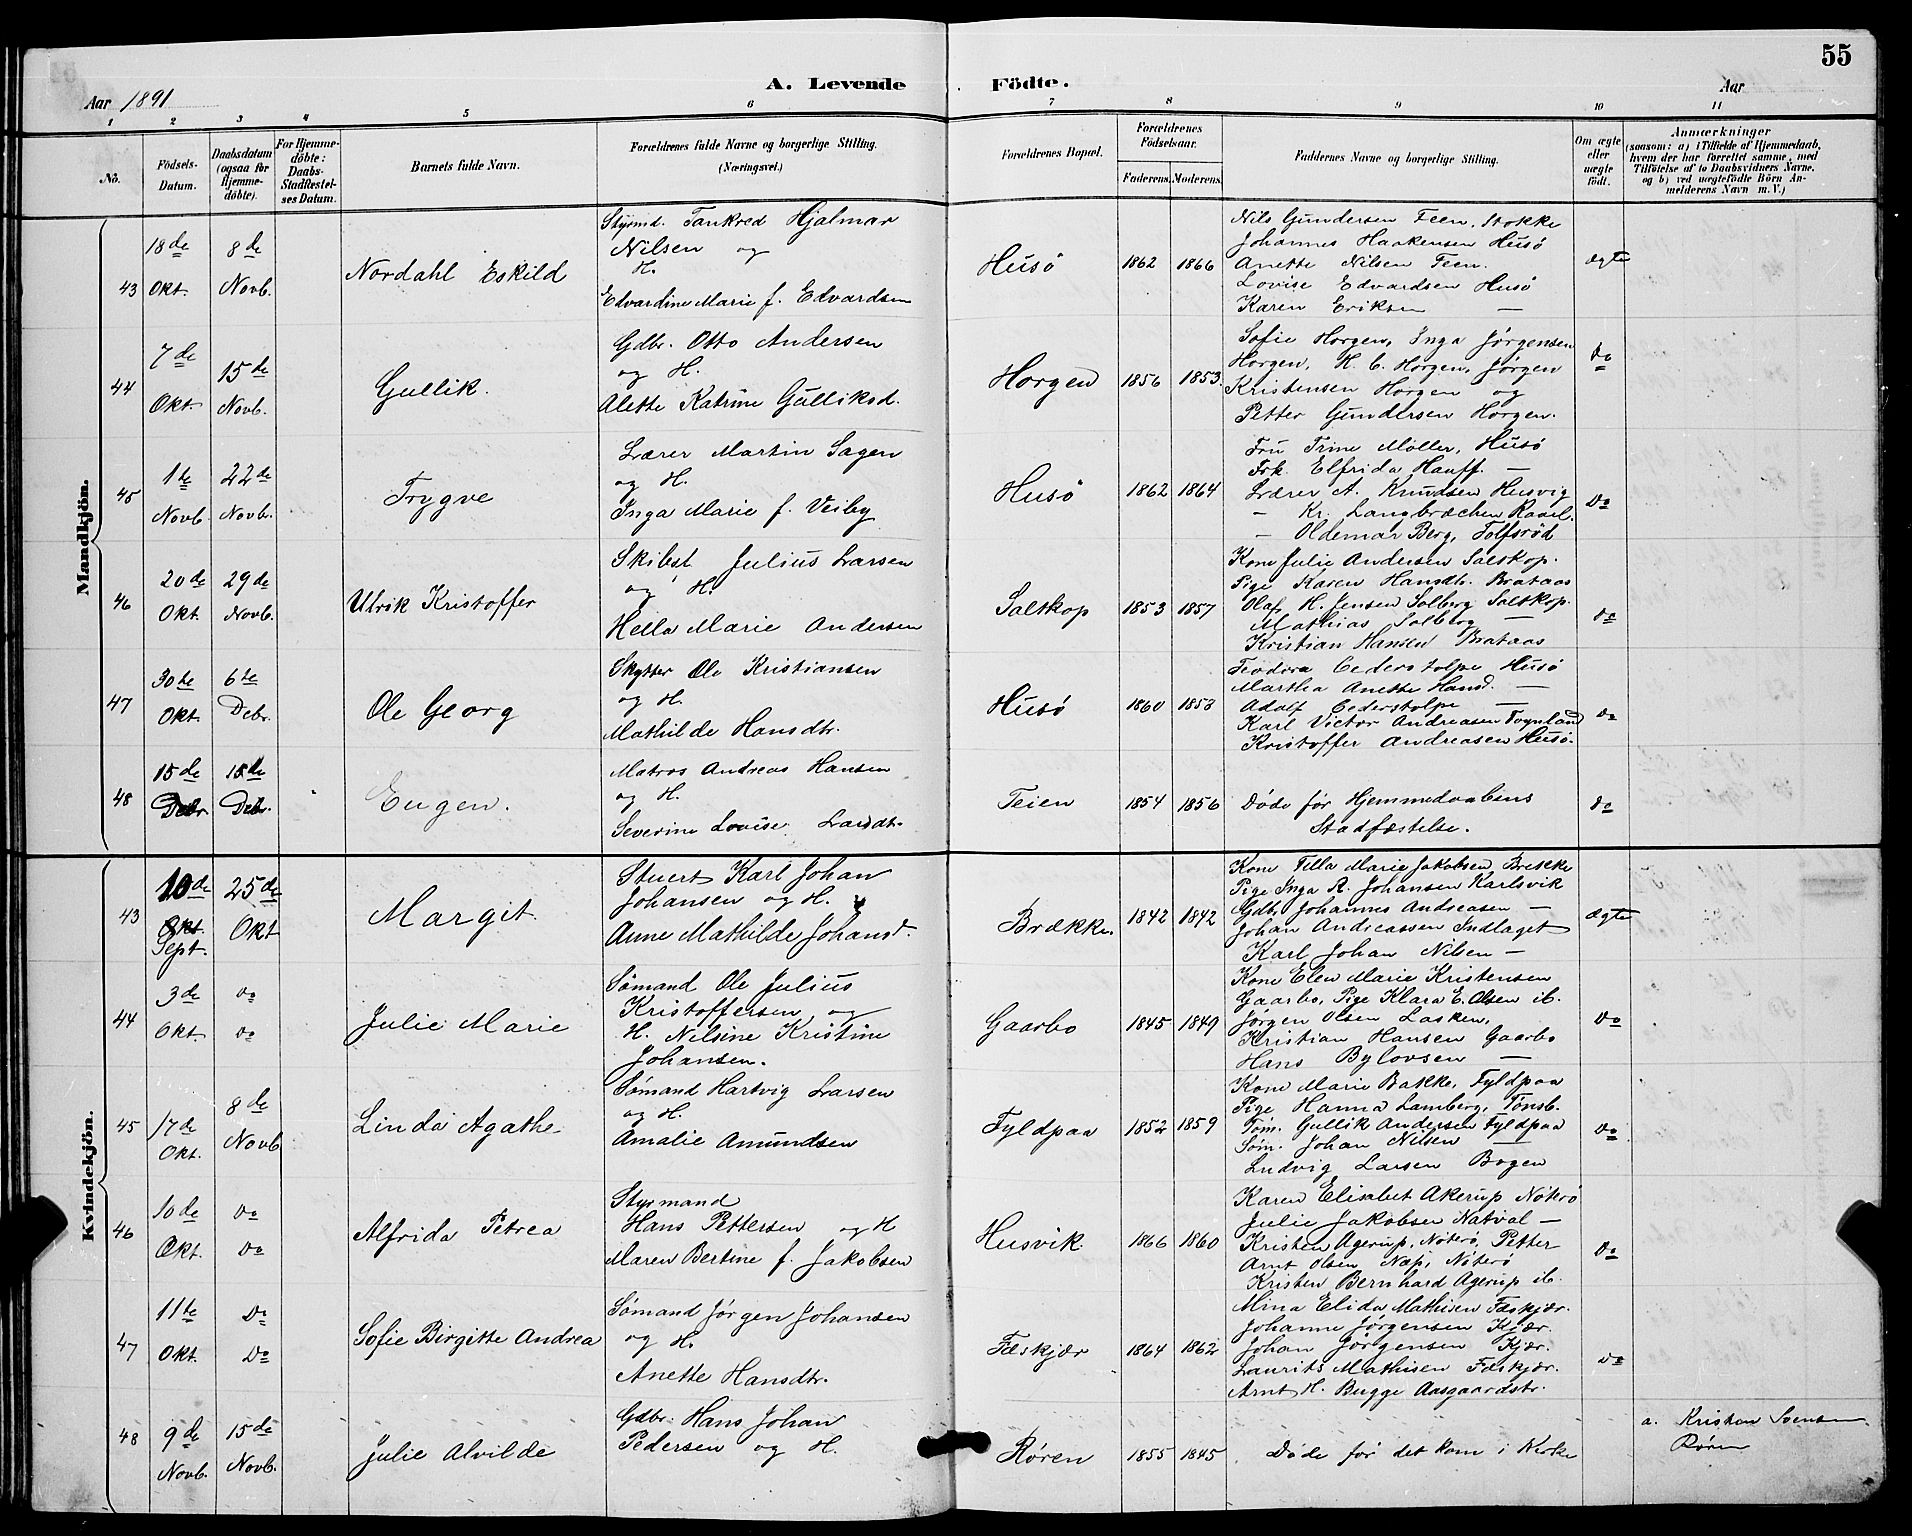 55
Aar 1891
A. Levende Födte.
Aar
1 2 3 4 5 6 7 8 9 10 11
No.
Födsels-Datum.
Daabsdatum (ogsaa for Hjemme-döbte).
For Hjemme-döbte: Daabs-Stadfæstel-ses Datum.
Barnets fulde Navn.
Forældrenes fulde Navne og borgerlige Stilling. (Næringsvei.)
Forældrenes Bopæl.
Forældrenes Födselsaar.
Faderens. Moderens.
Faddernes Navne og borgerlige Stilling.
Om ægte eller uægte födt.
Anmærkninger
(saasom: a) i Tilfælde af Hjemmedaab,
hvem der har forrettet samme, med
Tilföielse af to Daabsvidners Navne,
og b) ved uægtefödte Börn An-
melderens Navn m. V.)
Mandkjön.
43 18de Okt. 8de Novb. Nordahl Eskild
Styrmd. Tankred Hjalmar
Nilsen og
H.
Edvardine Marie f. Edvardsen
Husö 1862 1866
Nils Gundersen Teen, Stokke
Johannes Haakensen Husö
Anette Nilsen Teen.
Lovise Edvardsen Husö
Karen Eriksen —
ægte
44 7de Okt. 15de Novb. Gullik.
Gdbr. Otto Andersen
og H.
Alette Katrine Gulliksd.
Horgen 1856 1853.
Sofie Horgen, Inga Jørgensen
Horgen, H. C. Horgen, Jørgen
Kristensen Horgen og
Petter Gundersen Horgen.
Do
45 1te Novb. 22de Novb. Trygve
Lærer Martin Sagen
og H.
Inga Marie f. Veiby
Husö 1862 1864
Fru Trine Möller, Husö
Frk. Elfrida Hauff. —
Lærer A. Knudsen Husvig
— Kr. Langbræchen
— Oldemar Berg, Tolfsröd
Do
46 20de Okt. 29de Novb. Ulrik Kristoffer
Skibst Julius Larsen
og H.
Hella Marie Andersen
Saltkop 1853 1857
Kone Julie Andersen Saltkop.
Pige Karen Hansdtr. Brataas
Olaf H. Jensen Solberg Saltkop.
Mathias Solberg —
Kristian Hansen Brataas
Do
47 30te Okt. 6te Debr. Ole Georg
Skytter Ole Kristiansen
og H.
Mathilde Hansdtr.
Husö 1860 1858
Teodora Cederstolpe Husö
Martha Anette Hansd. —
Adolf Cederstolpe —
Karl Victor Andreasen
Kristoffer Andreasen Husö.
Do
48 15de Debr. 15de Debr. Eugen.
Matros Andreas Hansen
og H.
Severine Lovise Larsdt.
Teien 1854 1856
Döde før Hjemmedaabens
Stadfæstelse.
Do
Kvindekjön.
43 10de Okt. Sept. 25de Okt Margit
Stuert Karl Johan
Johansen og H.
Anne Mathilde Johansd.
Brække. 1842 1842
Kone Tilla Marie Jakobsen Brekke
Pige Inga R. Johansen Karlsvik
Gdb. Johannes Andreasen —
Johan Andreassen Indlaget
Karl Johan Nilsen —
ægte
44 3de Okt. Do Do Julie Marie
Sömand Ole Julius
Kristoffersen og
H. Nilsine Kristine
Johansen.
Gaarbo 1845 1849
Kone Elen Marie Kristensen
Gaarbo, Pige Klara E. Olsen ib.
Jørgen Olsen Lasken,
Kristian Hansen Gaarbo
Hans Bylovsen —
Do
45 17de Okt. 8de Novb Linda Agathe
Sömand Hartvig Larsen
og H.
Amalie Amundsen
Fyldpaa 1852 1859
Kone Marie Bakke, Fyldpaa
Pige Hanna Lamberg, Tönsb.
Töm. Gullik Andersen Fyldpaa
Söm. Johan Nilsen —
Ludvig Larsen Bogen
Do
46 10de Okt. Do Do Alfrida Petrea
Styrmand
Hans Pettersen og H
Maren Bertine f. Jakobsen
Husvik 1866 1860
Karen Elisabet Akerup Nöterö
Julie Jakobsen Natval —
Kristen Agerup, Nöterö, Petter
Arnt Olsen Næs, Nöterö
Kristen Bernhard Agerup ib.
Do
47 11te Okt. Do Do Sofie Birgitte Andrea
Sömand Jørgen Johansen
og H.
Anette Hansdtr.
Fæskjær 1864 1862
Mina Elida Mathisen Fæskjær.
Johanne Jörgensen Kjær.
Johan Jörgensen Kjær.
Laurits Mathisen Fæskjær.
Arnt H. Bugge Aasgaardstr.
Do
48 9de Novb. 15de Novb. Julie Alvilde
Gdbr. Hans Johan
Pedersen og H.
Røren 1855 1845
Døde før det kom i Kirke
a. Kristen Svensen
Røren